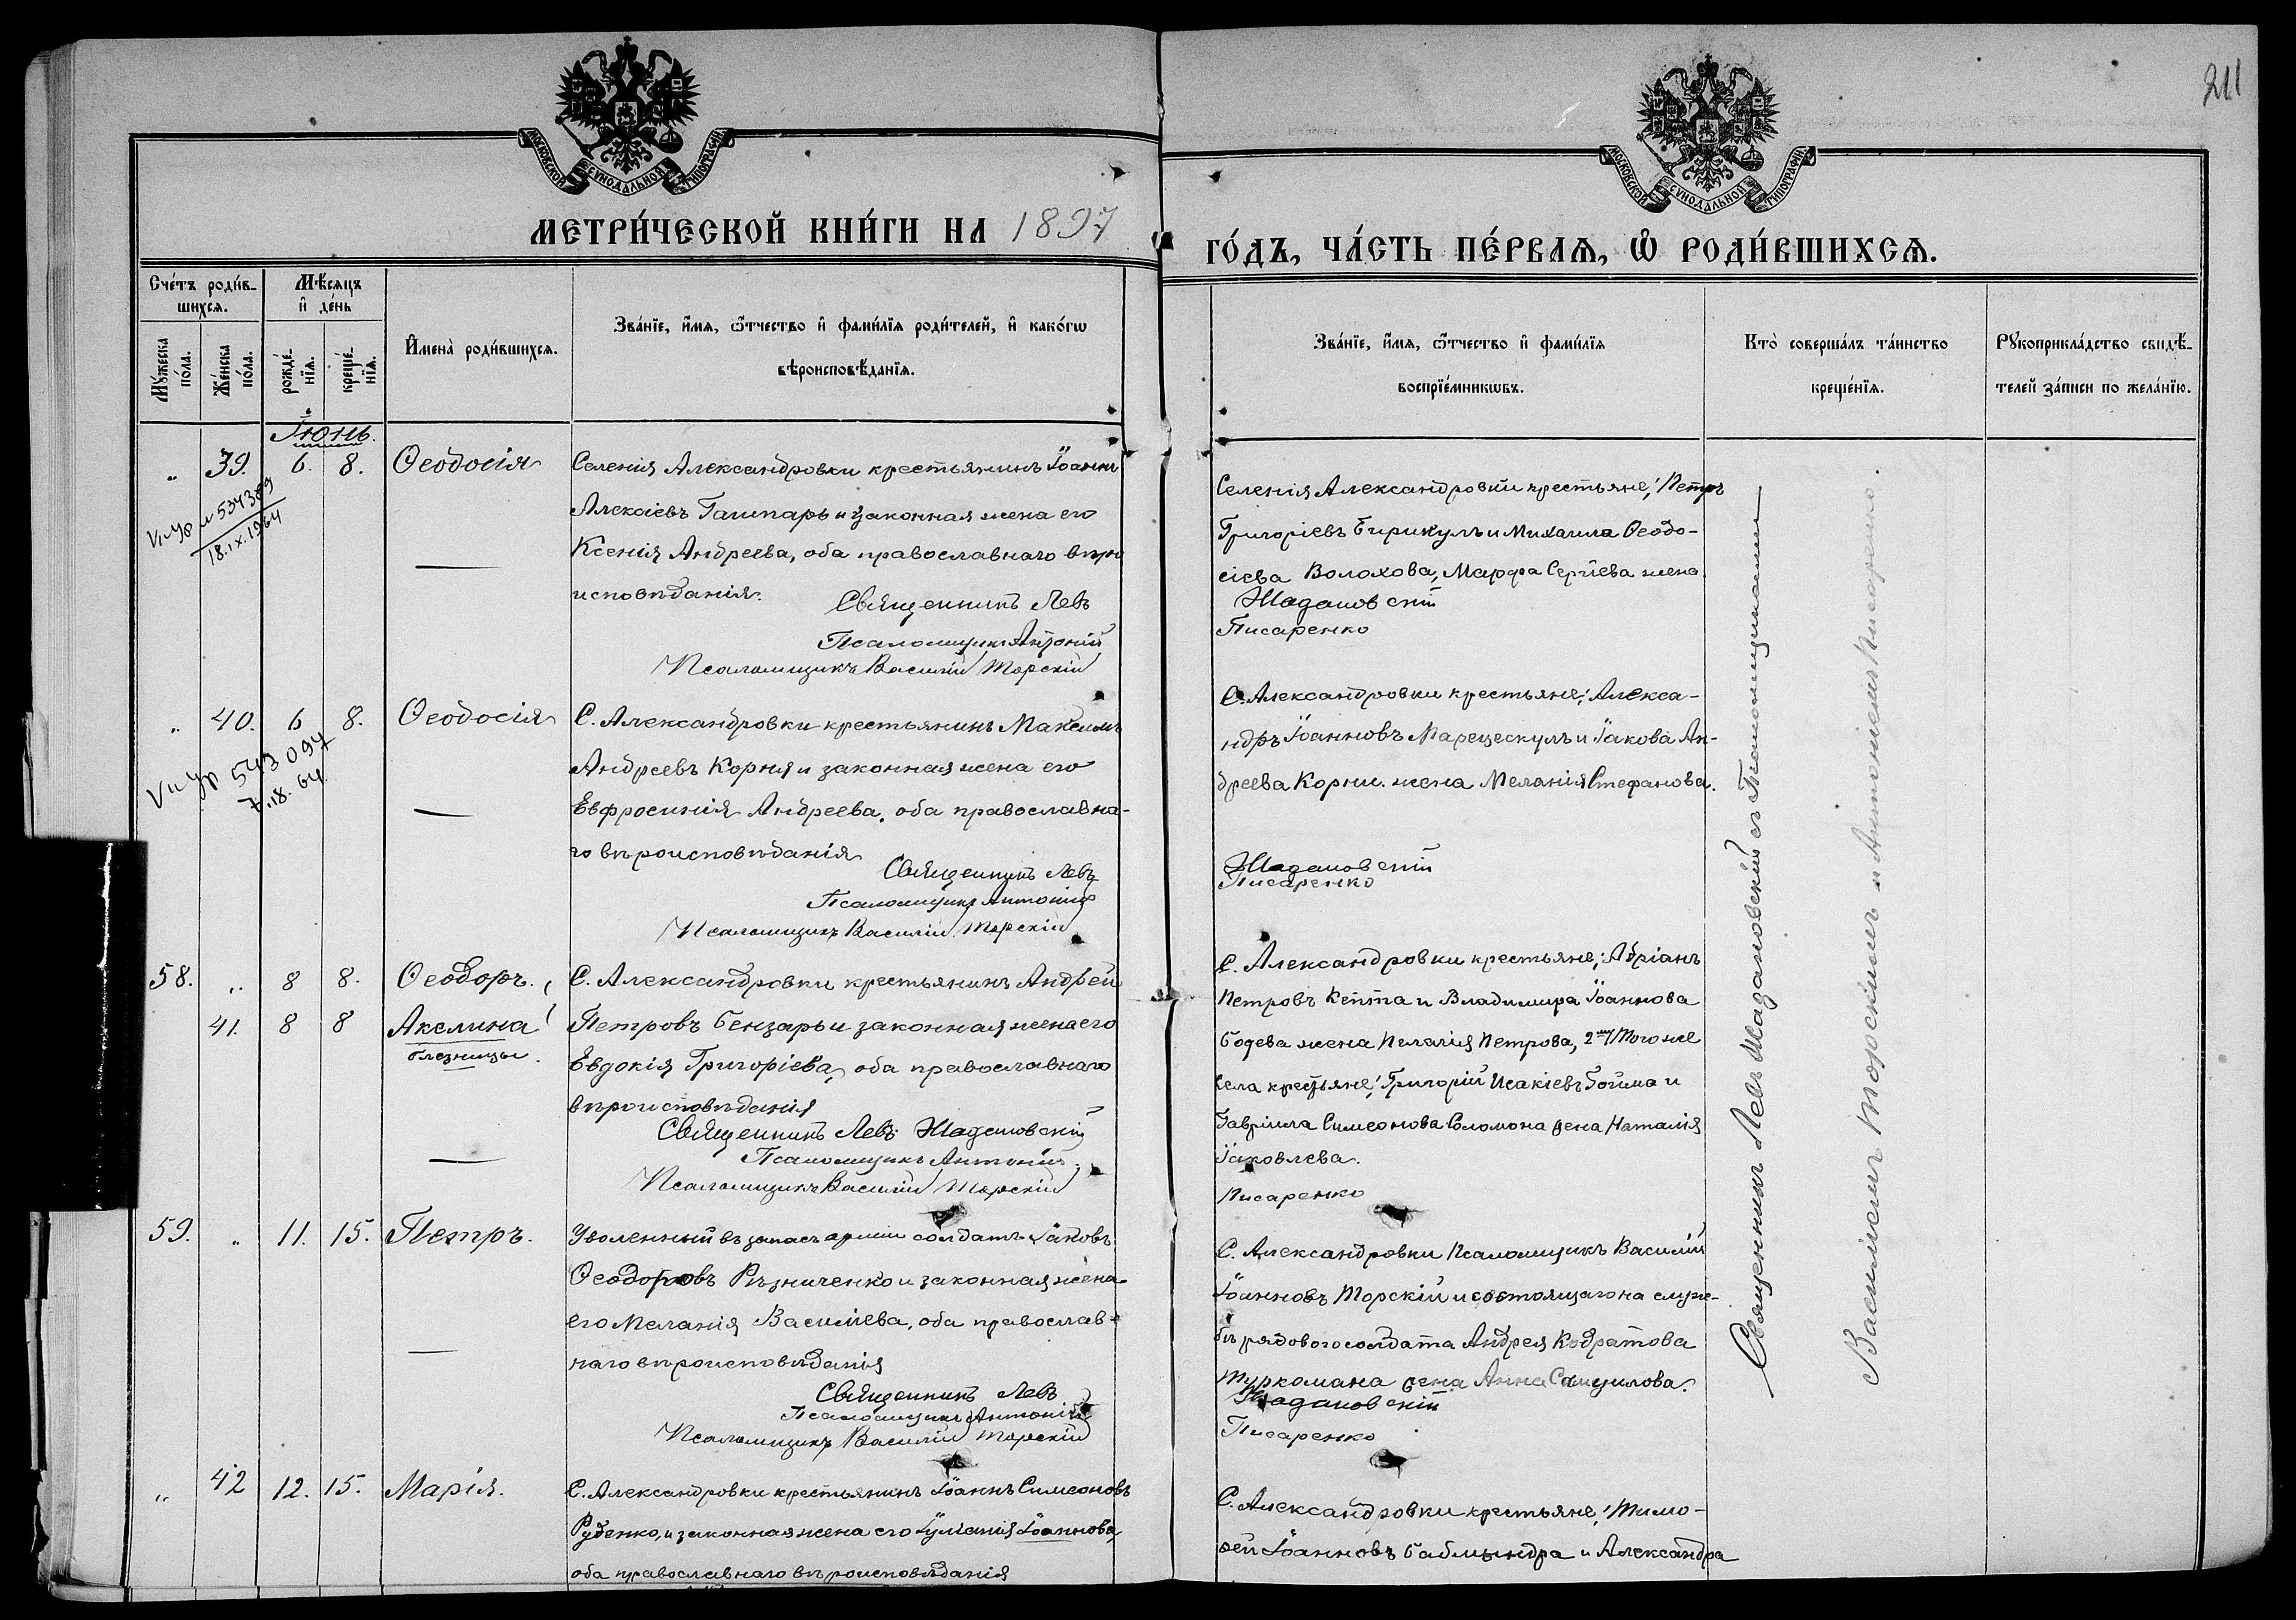 211
МОСКОВСКОЙ СѴНОДАЛЬНОЙ ТИПОГРАФІИ
МОСКОВСКОЙ СѴНОДАЛЬНОЙ ТИПОГРАФІИ
МЕТРИ́ЧЕСКОЙ КНИ́ГИ НА 1897
ГО́ДЪ, ЧА́СТЬ ПЕ́РВАѦ, Ѡ РОДИ́ВШИХСѦ.
Сче́тъ роди́в-
шихсѧ.
Мꙋ́жеска по́ла.
Же́нска по́ла.
Мѣ́сѧцъ
и҆ де́нь
рожде́-
нїѧ.
креще́-
нїѧ.
И҆мена̀ роди́вшихсѧ.
Зва́нїе, и҆́мѧ, ѻ҆́тчество и҆ фами́лїѧ роди́телей, и҆ како́гѡ
вѣроисповѣ́данїѧ.
Зва́нїе, и҆́мѧ, ѻ҆́тчество и҆ фами́лїѧ
воспрїе́мникѡвъ.
Кто̀ соверша́лъ та́инство
креще́нїѧ.
Рꙋкоприкла́дство свидѣ́-
телей за́писи по жела́нїю.
Іюнь.
„ 39. 6. 8. Ѳеодосія
18.IX.1964
Селенія Александровки крестьянинъ Іоаннъ
Алексіевъ Гашпарь и законная жена его
Ксенія Андреева, оба православнаго вѣро
исповѣданія.
Священникъ Левъ
Псаломщикъ Антоній
Псаломщикъ Василій Торскій
Селенія Александровки крестьяне; Петръ
Григоріевъ Бирикулъ и Михаила Ѳеодо-
сіева Волохова, Марфа Сергіева жена
Шадановскій
Писаренко
„ 40. 6 8. Ѳеодосія
543 094
С. Александровки крестьянинъ Максимъ
Андреевъ Корня и законная жена его
Евфросинія Андреева, оба православна-
го вѣроисповѣданія
Священникъ Левъ
Псаломщикъ Антоній
Псаломщикъ Василій Торскій
С. Александровки крестьяне; Алекса-
ндръ Іоанновъ и Іакова Ан-
дреева Корни жена Меланія Стефанова.
Шадановскій
Писаренко
58. „ 8 8. Ѳеодоръ.
41. 8 8 Акелина
близнецы.
С. Александровки крестьянинъ Андрей
Петровъ Бензарь и законная жена его
Евдокія Григоріева, оба православнаго
вѣроисповѣданія
Священникъ Левъ Шадановскій
Псаломщикъ Антоній
Псаломщикъ Василій Торскій
С. Александровки крестьяне; Адріанъ
Петровъ Кепта и Владимира Іоаннова
Бодева жена Пелагія Петрова, 2й/ Того же
села крестьяне; Григорій Исакіевъ и
Гавріила Симеонова Соломона жена Наталія
Іаковлева.
Писаренко
59. „ 11. 15. Петръ.
Уволенный въ запасъ арміи солдатъ Іаковъ
Ѳеодоровъ Рѣзниченко и законная жена
его Меланія Василіева, оба православ-
наго вѣроисповѣданія
Священникъ Левъ
Псаломщикъ Антоній
Псаломщикъ Василій Торскій
С. Александровки Псаломщикъ Василій
Іоанновъ Торскій и состоящаго на служ-
бѣ рядового солдата Андрея Кодратова
Туркомана жена Анна Самуилова.
Шадановскій
Писаренко
„ 42 12. 15. Марія.
С. Александровки крестьянинъ Іоаннъ Симеоновъ
Руденко, и законная жена его Іуліанія Іоаннова,
оба православнаго вѣроисповѣданія
С. Александровки крестьяне; Тимо-
ѳей Іоанновъ и Александра
Священникъ Левъ Шадановскій съ Псаломщиками
Василіемъ Торскимъ и Антоніемъ Писаренко